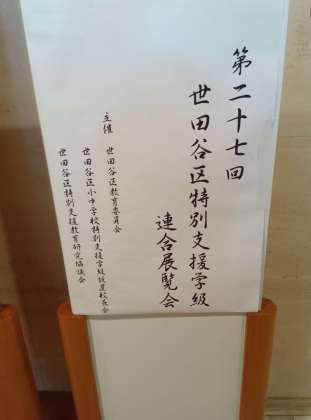 第二十七回
世田谷区特別支援学級
連合展覧会
主催
世田谷区教育委員会
世田谷区小中学校特別支援学級設置校長会
世田谷区特別支援教育研究協議会